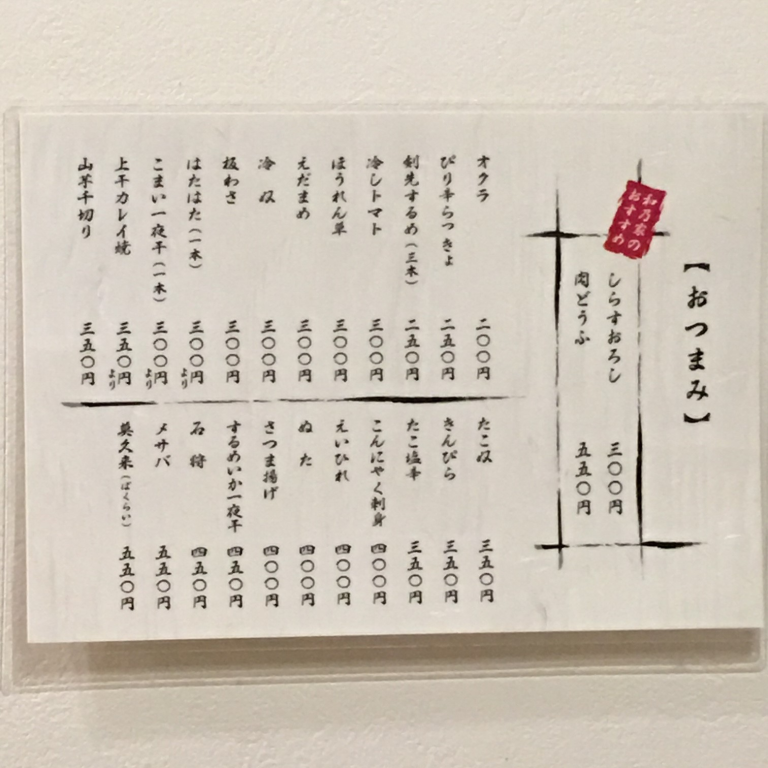 【おつまみ】
和乃家の
おすすめ
しらすおろし 三〇〇円
肉どうふ 五五〇円
オクラ 二〇〇円
ぴり辛らっきょ 二五〇円
剣先するめ（三本） 二五〇円
冷しトマト 三〇〇円
ほうれん草 三〇〇円
えだまめ 三〇〇円
冷奴 三〇〇円
板わさ 三〇〇円
はたはた（一本） 三〇〇円より
こまい一夜干（一本） 三〇〇円より
上干カレイ焼 三五〇円より
山芋千切り 三五〇円
たこぬ 三五〇円
きんぴら 三五〇円
たこ塩辛 三五〇円
こんにゃく刺身 四〇〇円
えいひれ 四〇〇円
ぬた 四〇〇円
さつま揚げ 四〇〇円
するめいか一夜干 四五〇円
石狩 四五〇円
メサバ 五五〇円
莫久来（ばくらい） 五五〇円